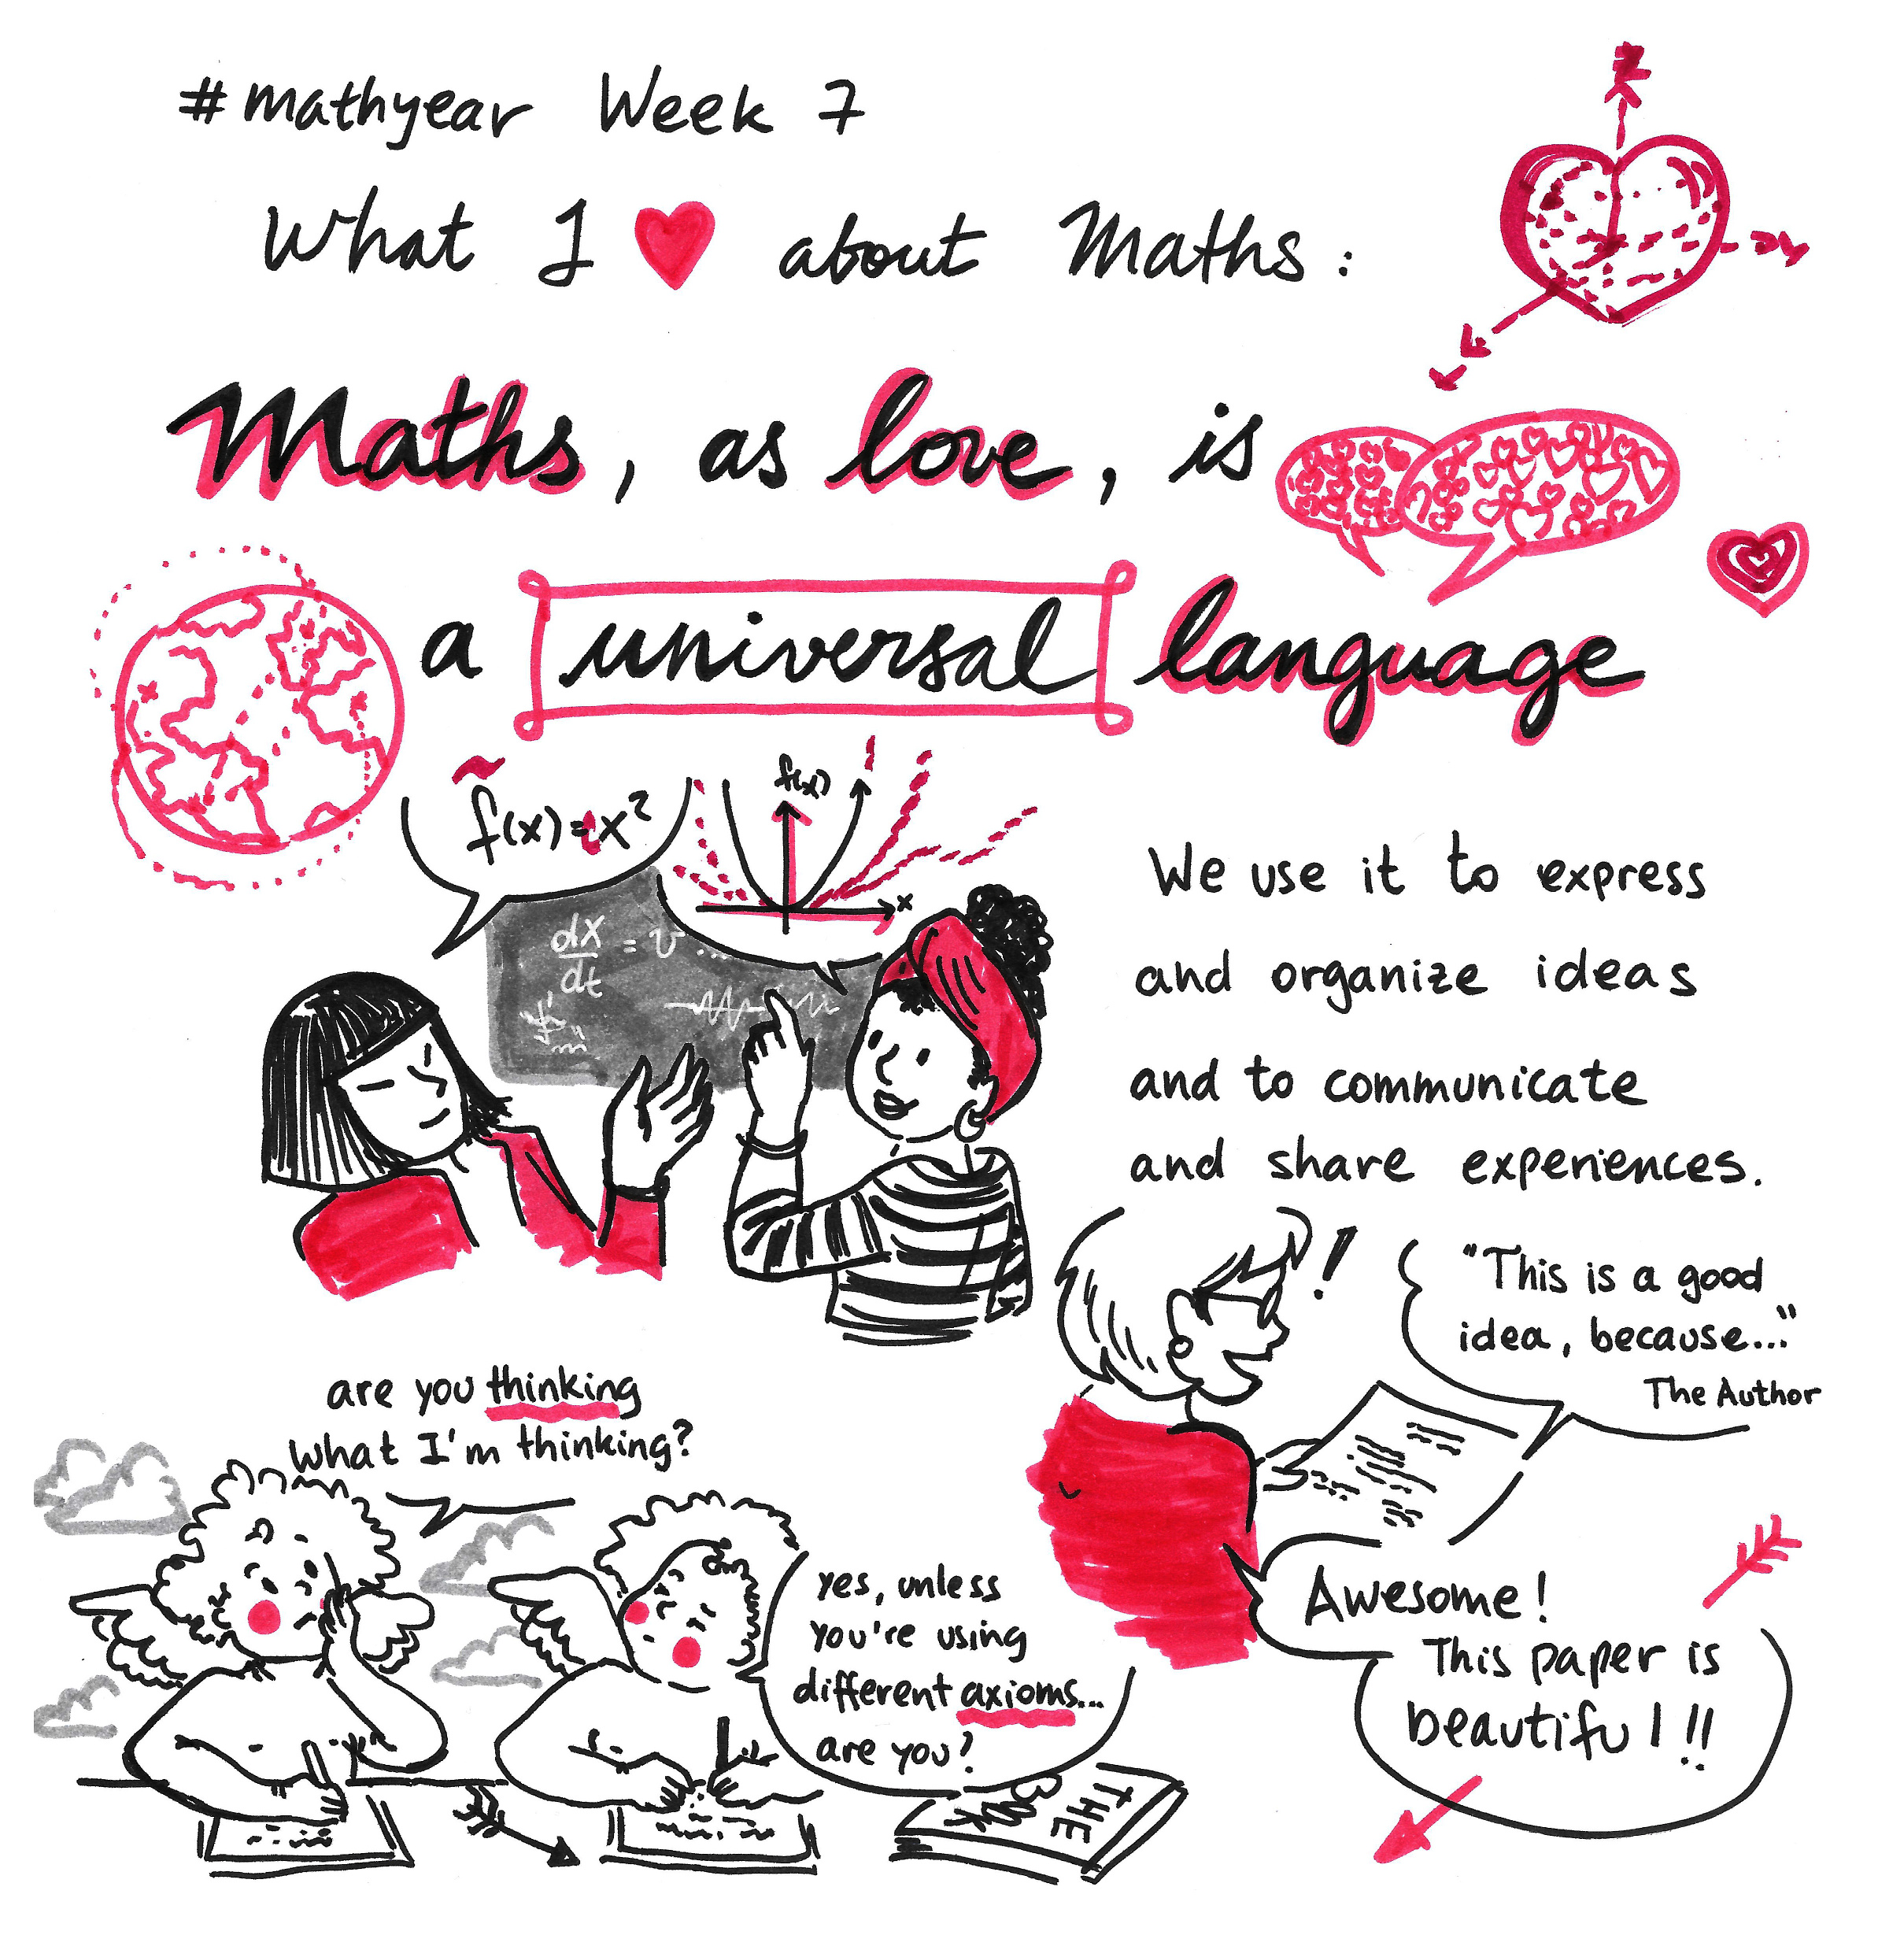 #mathyear Week 7
What I ♥ about Maths:
Z
Maths, as love, is
a universal language
f̃(x)=x²
f(x)
x
dx/dt = v ...
We use it to express
and organize ideas
and to communicate
and share experiences.
!
"This is a good
idea, because..."
The Author
are you thinking
what I'm thinking?
yes, unless
you're using
different axioms...
are you?
Awesome!
This paper is
beautiful!!
THE
Book